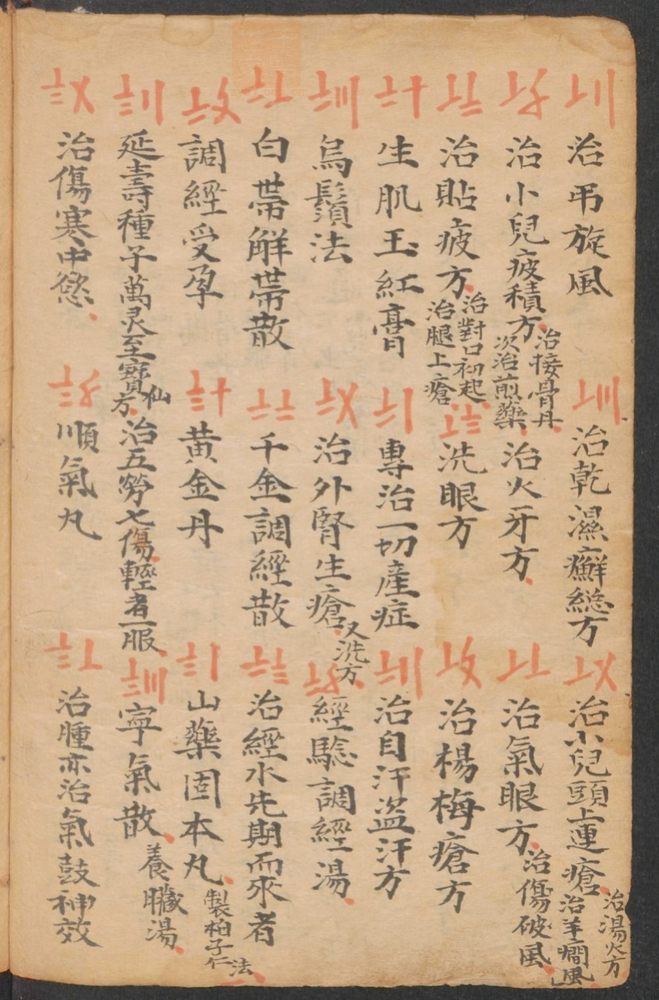 治吊旋風
治乾濕癬總方
治小兒頭上連瘡
治湯火方
治羊癇風
治小兒疲積方
治接骨丹
次治煎藥
治火牙方
治氣眼方
治傷破風
治貼疲方
治對口初起
治腿上瘡
洗眼方
治楊梅瘡方
生肌玉紅膏
專治一切產症
治自汗盜汗方
烏鬚法
治外腎生瘡
又洗方
經驗調經湯
白帶觧帶散
千金調經散
治經水先期而來者
調經受孕
黃金丹
山藥固本丸
製柏子仁法
延壽種子萬灵至寶仙方
治五勞七傷輕者一服
寧氣散
養臟湯
治傷寒中慾
順氣丸
治腫亦治氣鼓神效